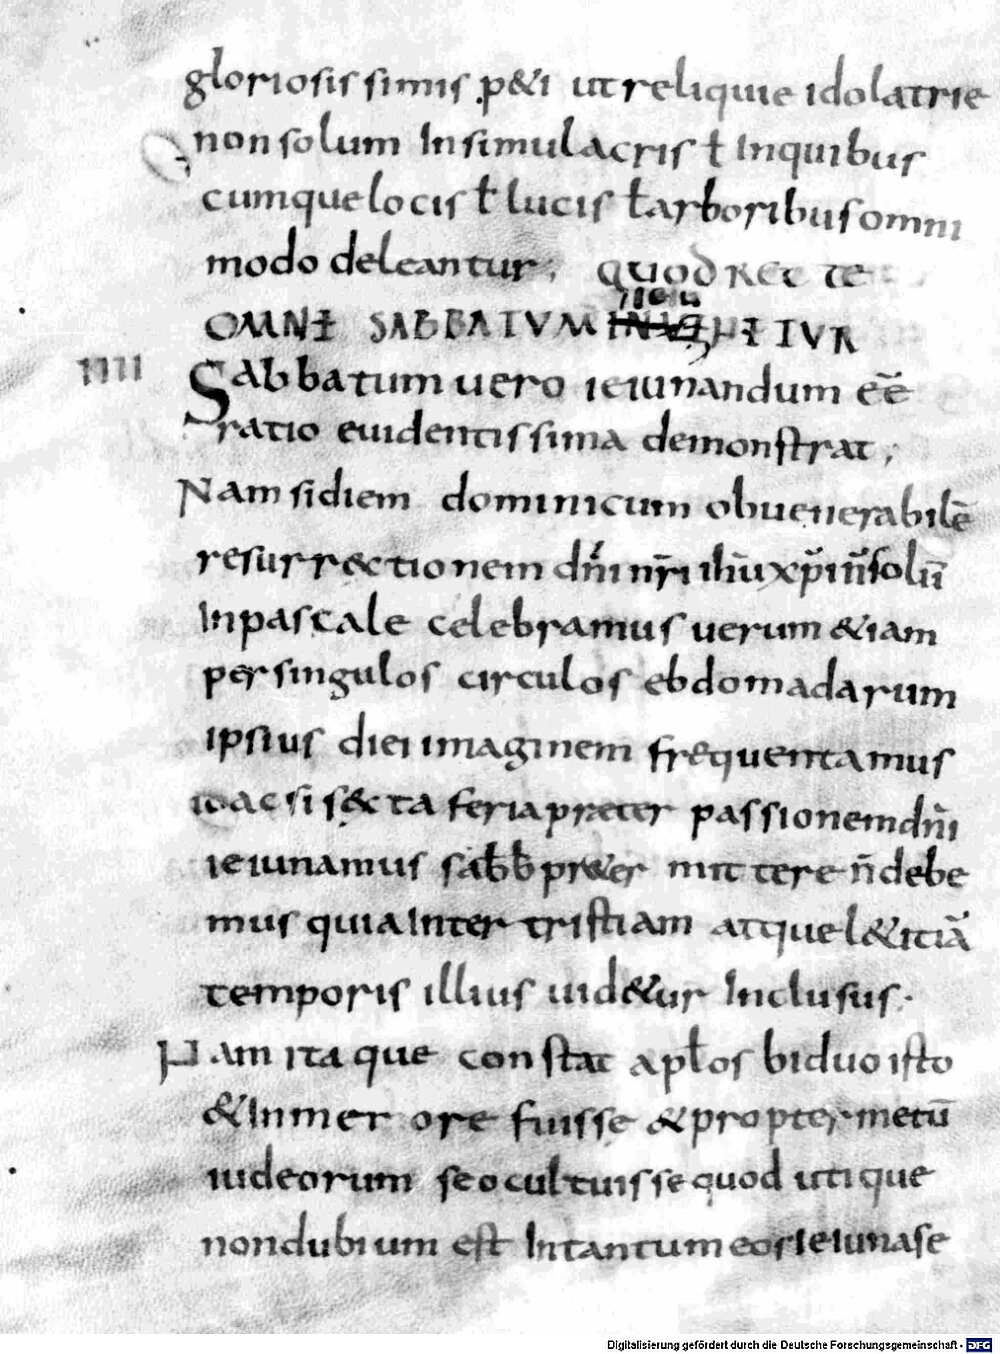 gloriosissimis p&i ut reliquie idolatrie
non solum In simulacris ł Inquibus
cumque locis ł lucis ł arboribus omni
modo deleantur; QUOD REC TE
OMNE SABBATUM
IIII Sabbatum uero ieiunandum eē
ratio euidentissima demonstrat;
Nam si diem dominicum ob uenerabilē
resurr&ctionem dñi nr̄i ihū xp̄i ñ solū
In pascale celebramus uerum &iam
per singulos circulos ebdomadarum
ipsius diei imaginem frequentamus
ac si s&cta feria preter passionem dñi
ieiunamus sabb pr&er mittere ñ debe
mus quia Inter tristiam atque l&itiā
temporis illius uid&ur Inclusus.
Nam itaque constat apłos biduo isto
& In merore fuisse & propter metū
iudeorum se ocultuisse quod utique
non dubium est In tantum eos ieiunase
Digitalisierung gefördert durch die Deutsche Forschungsgemeinschaft - DFG